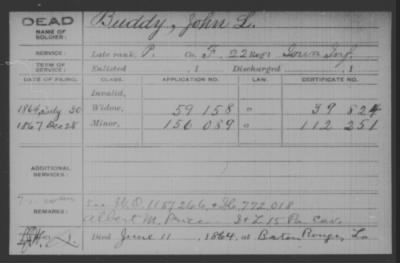 DEAD
Buddy, John L.
NAME OF SOLDIER:
SERVICE: Late rank, P. Co. F, 22 Reg't Iowa Inf
TERM OF SERVICE: Enlisted , 1 Discharged , 1
DATE OF FILING. CLASS. APPLICATION NO. LAW. CERTIFICATE NO.
Invalid,
1864, July 30 Widow, 59 158 " 39 824
1867 Dec 28 Minor, 156 089 " 112 251
ADDITIONAL SERVICES:
REMARKS:
W.O. 1187266, + 772 018
Albert M. Price L 15 Pa Cav.
Died June 11, 1864, at Baton Rouge, La